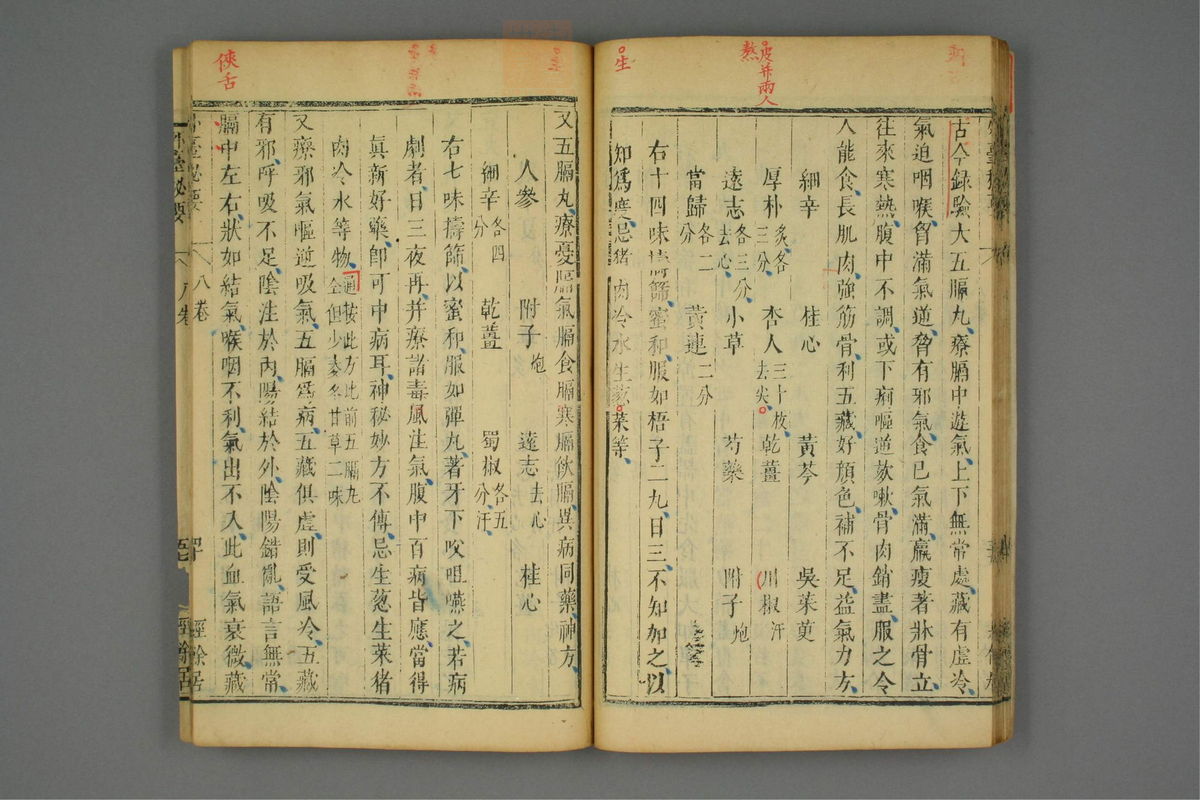 古今錄驗大五膈丸療膈中遊氣上下無常處藏有虛冷
氣迫咽喉胷滿氣道脅有邪氣食已氣滿羸瘦著牀骨立
往來寒熱腹中不調或下痢嘔逆欬嗽骨肉銷盡服之令
人能食長肌肉強筋骨利五藏好顏色補不足益氣力方
細辛 桂心 黃芩 吳茱萸
厚朴炙各三分 杏人三十枚去尖 乾薑 川椒汗
遠志各三分去心 小草 芍藥 附子炮
當歸各二分 黃連二分
右十四味擣篩蜜和服如梧子二九日三不知加之以
知爲度忌猪肉冷水生菜等
皮并兩人
熬
生
又五膈丸療憂膈氣膈食膈寒膈飲膈異病同藥神方
人參 附子炮 遠志去心 桂心
細辛各四分 乾薑 蜀椒各五分汗
右七味擣篩以蜜和服如彈丸著牙下㕮咀嚥之若病
劇者日三夜再并療諸毒風注氣腹中百病皆應當得
眞新好藥卽可中病耳神秘妙方不傳忌生葱生菜猪
肉冷水等物通按此方比前五膈丸全但少麥冬甘草二味
又療邪氣嘔逆吸氣五膈爲病五藏俱虛則受風冷五藏
有邪呼吸不足陰注於內陽結於外陰陽錯亂語言無常
膈中左右狀如結氣喉咽不利氣出不入此血氣衰微藏
俠舌
外臺秘要
八卷
經餘居